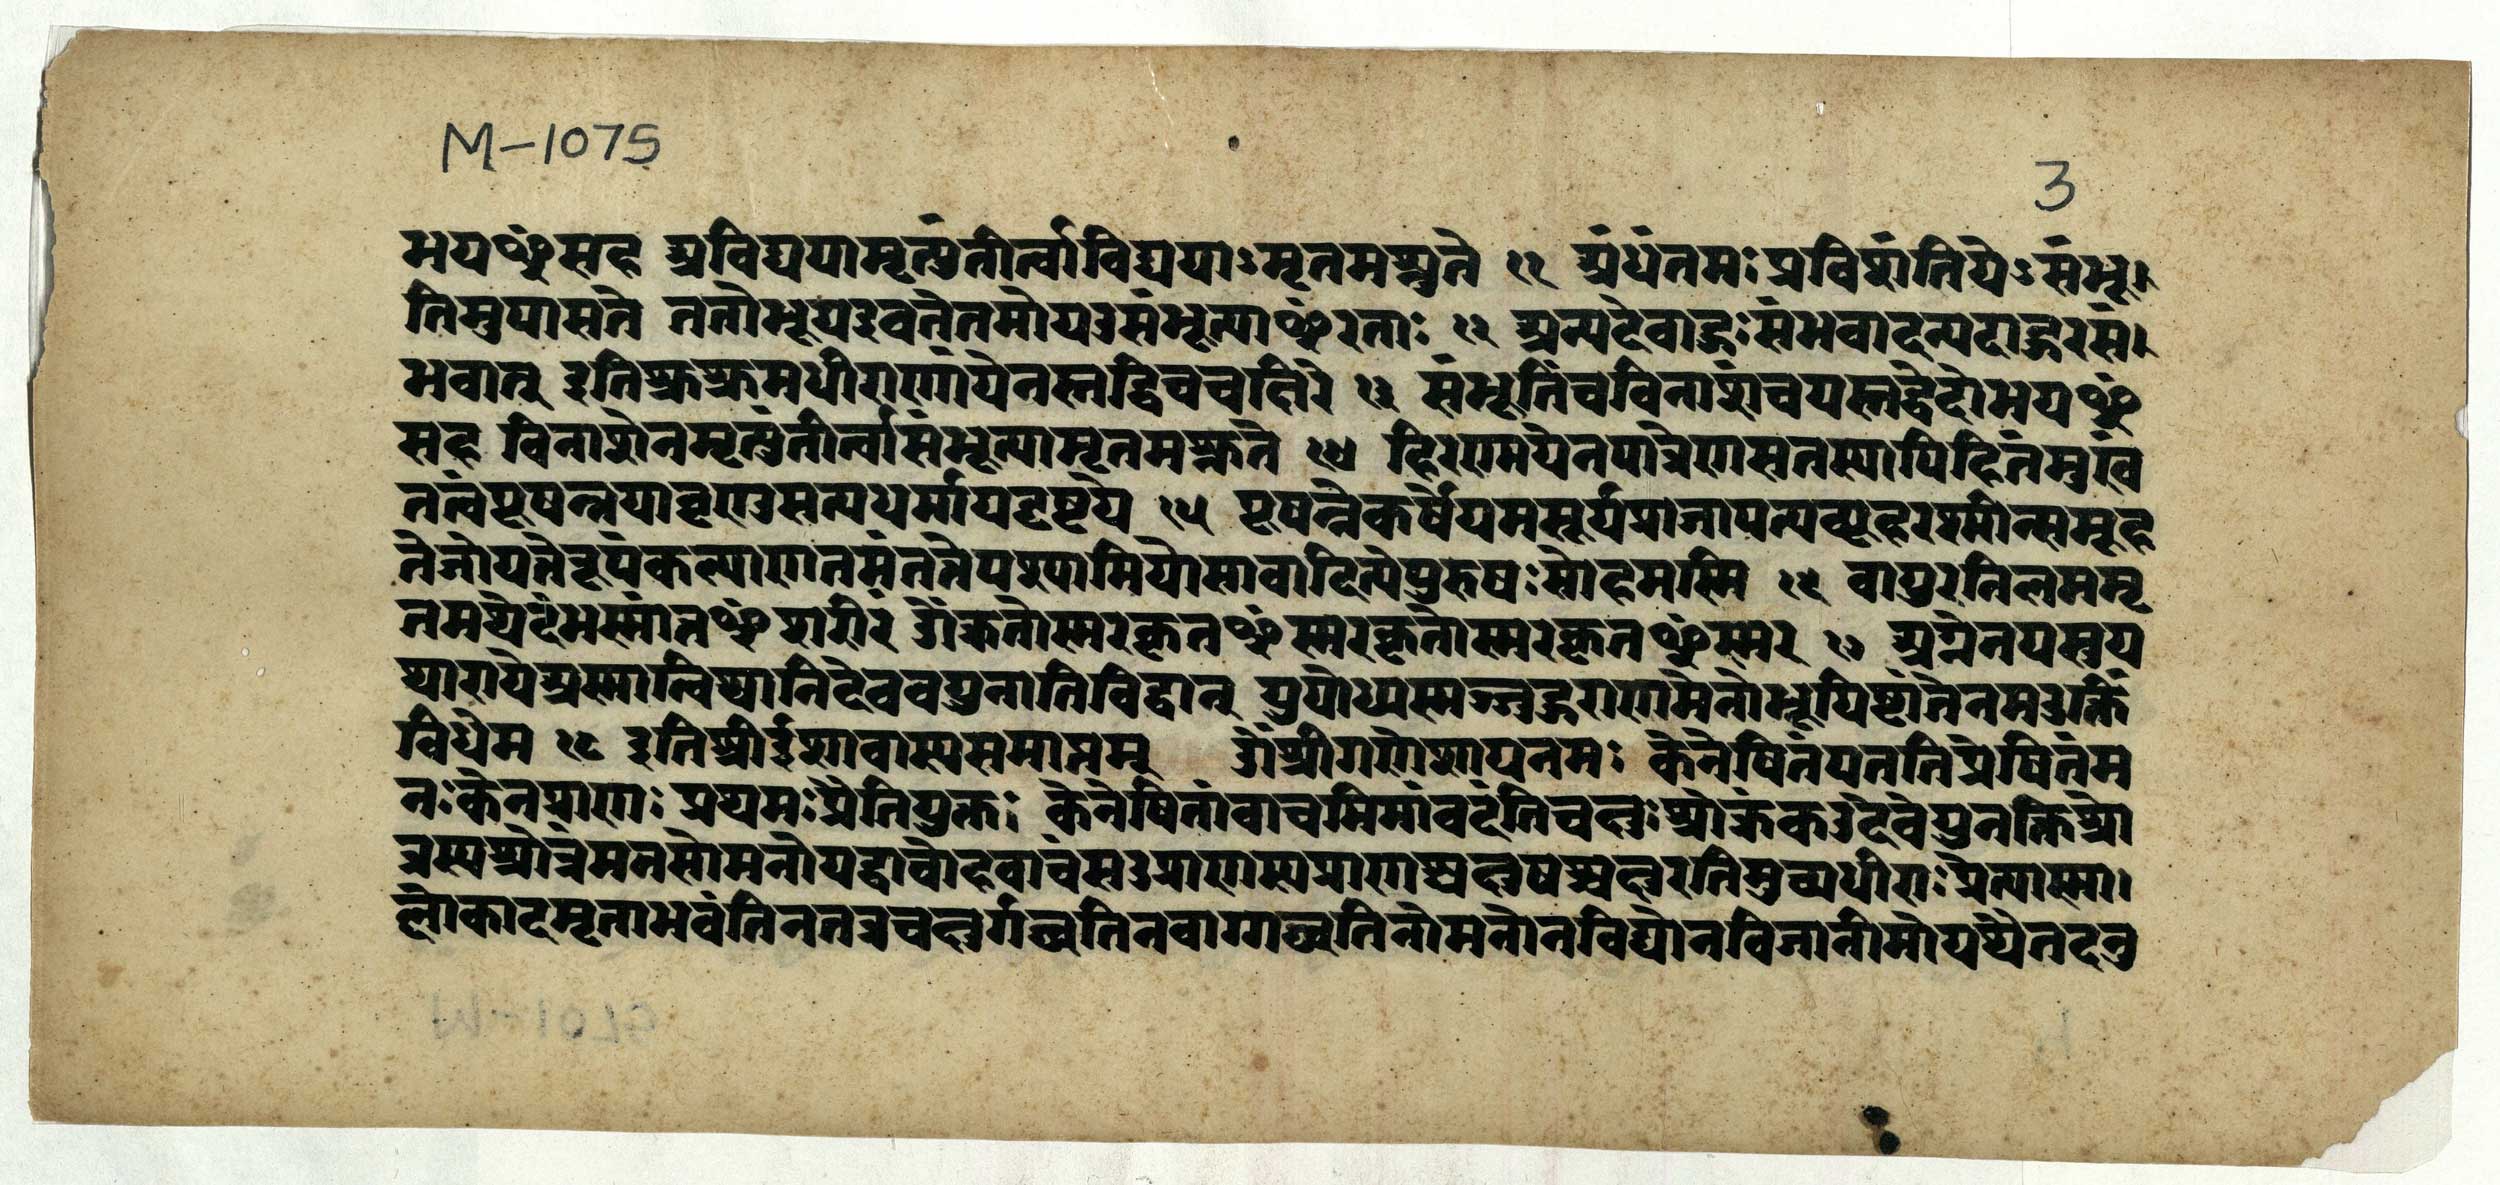 M-1075
3
मयꣳसह अविद्ययामृत्युंतीर्त्वाविद्ययाऽमृतमश्नुते ११ अंधंतमःप्रविशंतियेऽसंभू।
तिमुपासते ततोभूयइवतेतमोयउसंभूत्याꣳरताः १२ अन्यदेवाहुःसंभवादन्यदाहुरसं।
भवात् इतिशुश्रुमधीराणांयेनस्तद्विचचक्षिरे १३ संभूतिंचविनाशंचयस्तद्वेदोभयꣳ
सह विनाशेनमृत्युंतीर्त्वासंभूत्यामृतमश्नुते १४ हिरण्मयेनपात्रेणसतस्यापिहितंमुखं
तत्वंपूषन्नपावृणुसत्यधर्मायदृष्टये १५ पूषन्नेकर्षेयमसूर्यप्राजापत्यव्यूहरश्मीन्समूह
तेजोयत्तेरूपंकल्याणतमंतत्तेपश्यामियोसावादित्येपुरुषःसोहमस्मि १६ वायुरनिलममृ
तमथेदंभस्मांतꣳशरीरं ॐक्रतोस्मरकृतꣳस्मरक्रतोस्मरकृतꣳस्मर १७ अग्नेनयसुप
थारायेअस्मान्विश्वानिदेववयुनानिविद्वान् युयोध्यस्मज्जुहुराणमेनोभूयिष्टांतेनमउक्तिं
विधेम १८ इतिश्रीईशावास्यसमाप्तम् ॐश्रीगणेशायनमः केनेषितंपततिप्रेषितंम
नःकेनप्राणः प्रथमःप्रैतियुक्तः केनेषितांवाचमिमांवदंतिचक्षुःश्रोत्रंकउदेवोयुनक्तिश्रो
त्रस्यश्रोत्रंमनसोमनोयद्वाचोहवाचंसउप्राणस्यप्राणश्चक्षुषश्चक्षुरतिमुच्यधीराःप्रेत्यास्मा।
ल्लोकादमृताभवंतिनतत्रचक्षुर्गच्छतिनवाग्गच्छतिनोमनोनविद्मोनविजानीमोयथैतदनु